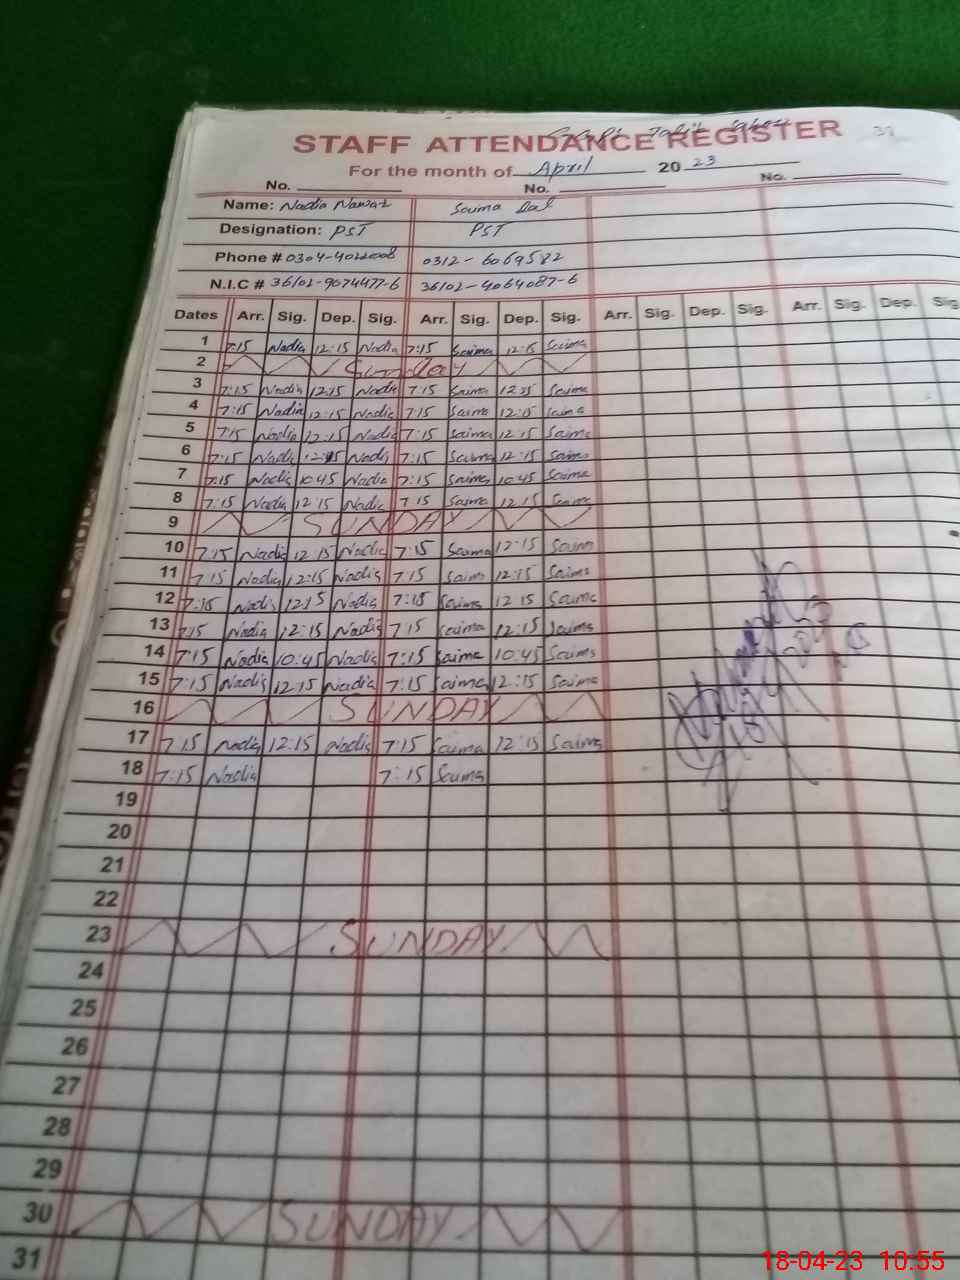 STAFF ATTENDANCE REGISTER 31
For the month of April 2023
No. No. No.
Name: Nadia Nawaz Saima
Designation: PST PST
Phone # 0312-6069582
N.I.C # 36102-9074477-6 36102-4064087-6
Dates Arr. Sig. Dep. Sig. Arr. Sig. Dep. Sig. Arr. Sig. Dep. Sig. Arr. Sig. Dep. Sig
1 7:15 Nadia 12:15 Nadia 7:15 Saima 12:15 Saima
2 Sunday
3 7:15 Nadia 12:15 Nadia 7:15 Saima 12:15 Saima
4 7:15 Nadia 12:15 Nadia 7:15 Saima 12:15 Saima
5 7:15 Nadia 12:15 Nadia 7:15 Saima 12:15 Saima
6 7:15 Nadia 12:15 Nadia 7:15 Saima 12:15 Saima
7 7:15 Nadia 10:45 Nadia 7:15 Saima 10:45 Saima
8 7:15 Nadia 12:15 Nadia 7:15 Saima 12:15 Saima
9 SUNDAY
10 7:15 Nadia 12:15 Nadia 7:15 Saima 12:15 Saima
11 7:15 Nadia 12:15 Nadia 7:15 Saima 12:15 Saima
12 7:15 Nadia 12:15 Nadia 7:15 Saima 12:15 Saima
13 7:15 Nadia 12:15 Nadia 7:15 Saima 12:15 Saima
14 7:15 Nadia 10:45 Nadia 7:15 Saima 10:45 Saima
15 7:15 Nadia 12:15 Nadia 7:15 Saima 12:15 Saima
16 SUNDAY
17 7:15 Nadia 12:15 Nadia 7:15 Saima 12:15 Saima
18 7:15 Nadia 7:15 Saima
19
20
21
22
23 SUNDAY
24
25
26
27
28
29
30 SUNDAY
31
18-04-23 10:55